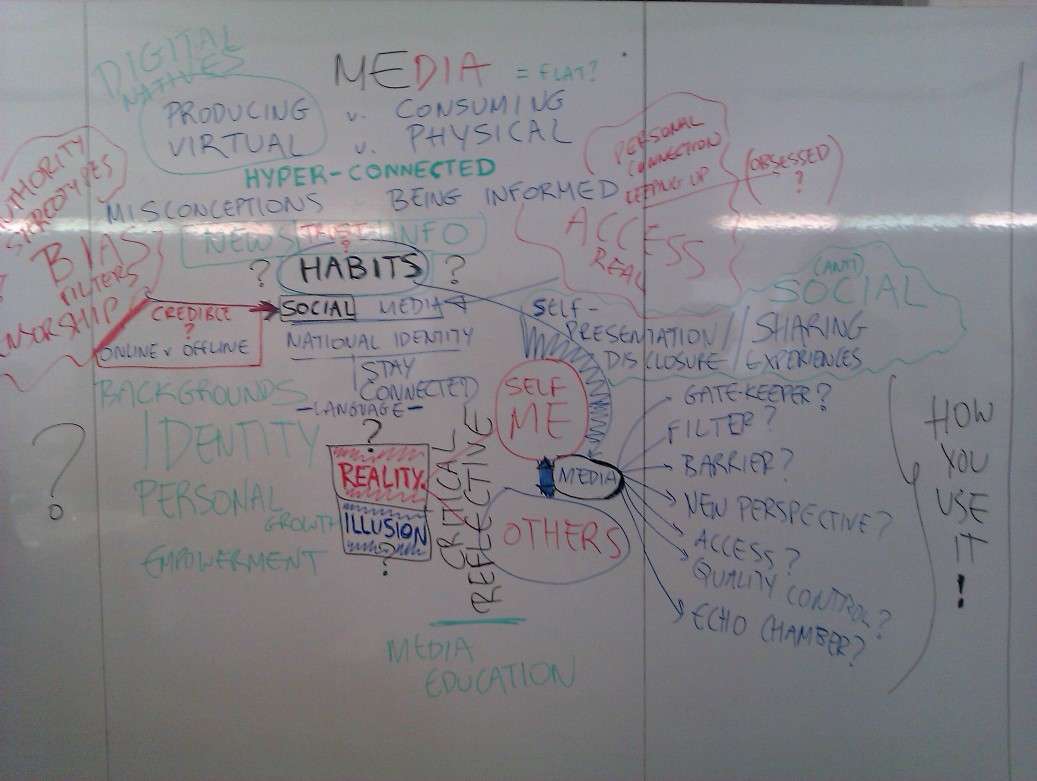 DIGITAL
NATIVES
MEDIA = FLAT?
PRODUCING v. CONSUMING
VIRTUAL v. PHYSICAL
HYPER-CONNECTED
MISCONCEPTIONS BEING INFORMED
PERSONAL
CONNECTION
KEEPING UP
(OBSESSED)
?
ACCESS
REAL
STEREOTYPES
BIAS
FILTERS
NEWS TRUST INFO
?
? HABITS ?
SOCIAL MEDIA
NATIONAL IDENTITY
CREDIBLE
?
ONLINE v OFFLINE
STAY
CONNECTED
- LANGUAGE -
(ANTI)
SOCIAL
SELF-
PRESENTATION/
DISCLOSURE
SHARING
EXPERIENCES
BACKGROUNDS
IDENTITY
PERSONAL
GROWTH
EMPOWERMENT
?
?
REALITY
ILLUSION
?
CRITICAL-
REFLECTIVE
SELF
ME
MEDIA
OTHERS
GATE-KEEPER?
FILTER?
BARRIER?
NEW PERSPECTIVE?
ACCESS?
QUALITY CONTROL?
ECHO CHAMBER?
HOW
YOU
USE
IT
!
MEDIA
EDUCATION